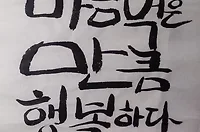 마음먹은
만큼
행복하다